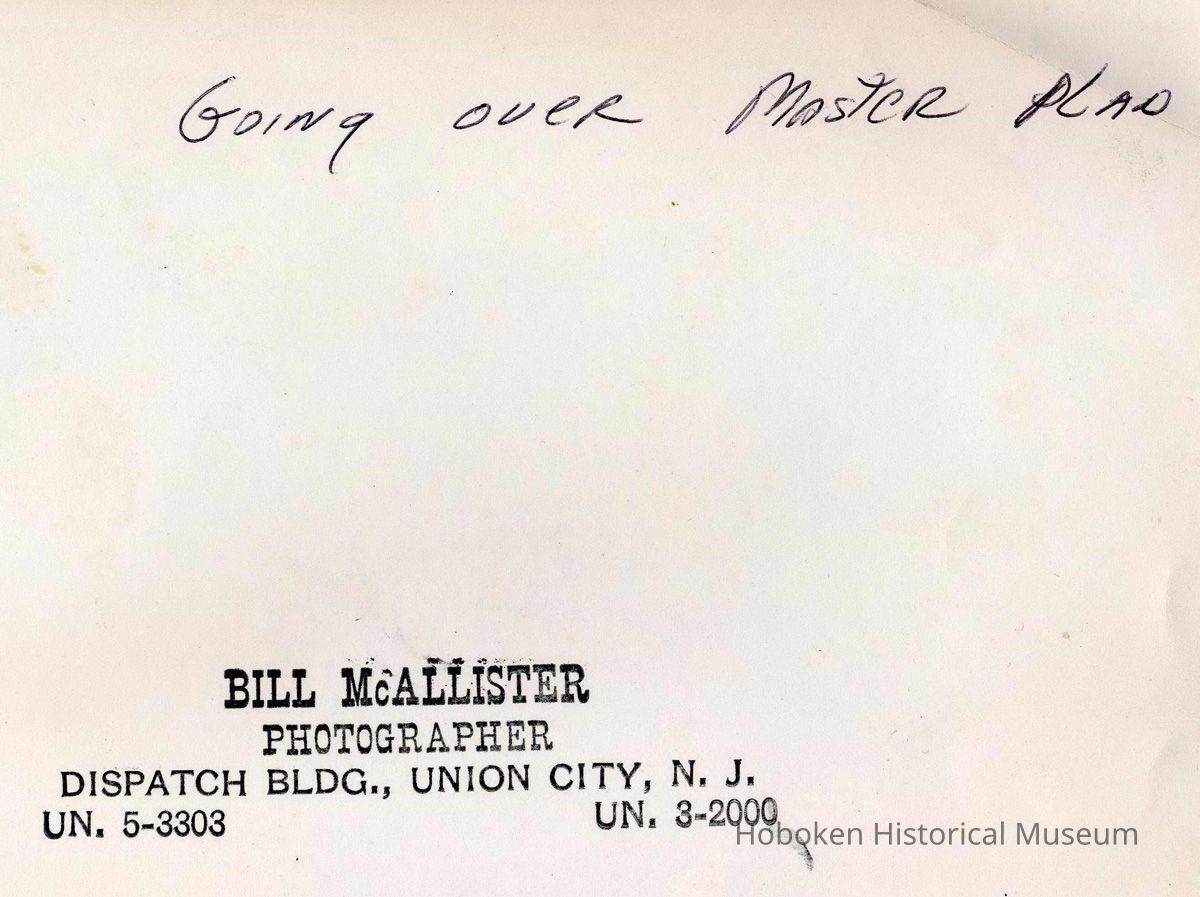 Going over Master Plan
BILL McALLISTER
PHOTOGRAPHER
DISPATCH BLDG., UNION CITY, N. J.
UN. 5-3303 UN. 3-2000
Hoboken Historical Museum